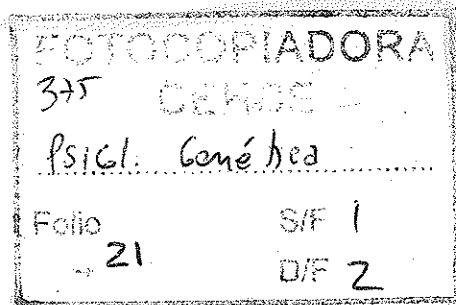 FOTOCOPIADORA
375 CEHCE
Psicl. Genética
Folio S/F 1
21 D/F 2